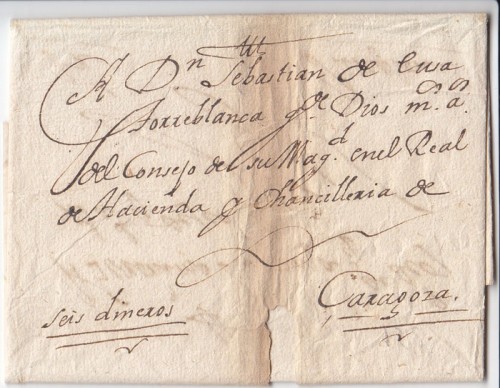 A Dn Sebastian de Cusa
Torreblanca q de Dios ms as
del Consejo de su Magd. en el Real
de Hacienda y Chancilleria de
Caragoza.
seis dineros